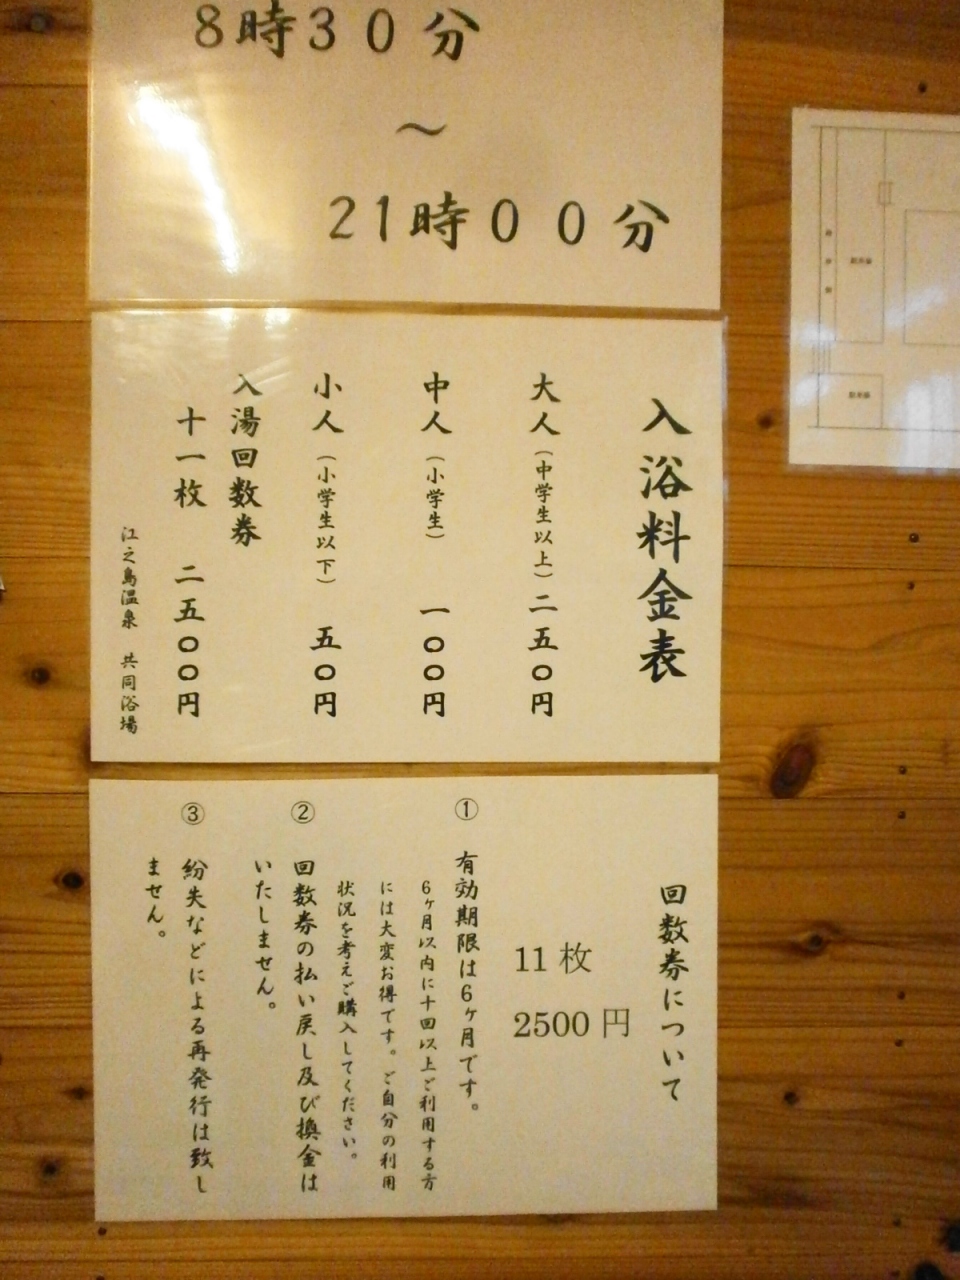 8時30分
～
21時00分
入浴料金表
大人（中学生以上）二五〇円
中人（小学生）　一〇〇円
小人（小学生以下）　五〇円
入湯回数券
十一枚　二五〇〇円
江之島温泉　共同浴場
回数券について
11枚
2500円
① 有効期限は6ヶ月です。
6ヶ月以内に十回以上ご利用する方
には大変お得です。ご自分の利用
状況を考えご購入してください。
② 回数券の払い戻し及び換金は
いたしません。
③ 紛失などによる再発行は致し
ません。